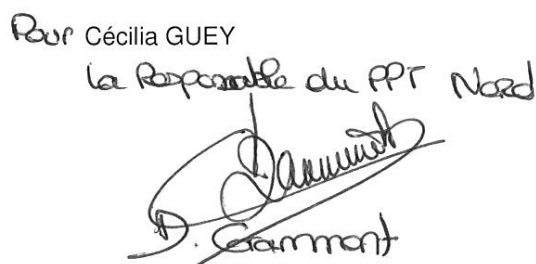 Pour Cécilia GUEY
La Responsable du PPT Nord
D. Grammont